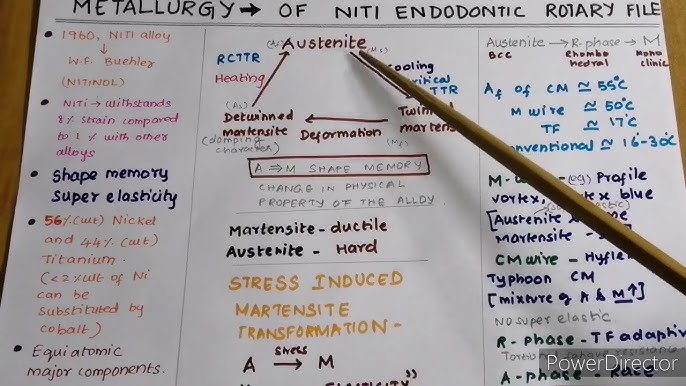 METALLURGY → OF NITI ENDODONTIC ROTARY FILE
1960, NITI alloy
→ W.F. Buehler
(NITINOL)
NITI → withstands
8% strain compared
to 1% with other
alloys
shape memory
super elasticity
56% (wt) Nickel
and 44% (wt)
Titanium.
(<2% wt of Ni
can be
substituted by
cobalt)
Equiatomic
major components.
(As) Austenite (Ms)
RCTTR
Heating
cooling
critical
TTR
(As)
Detwinned
martensite
Deformation
(damping
character)
(Mf)
A ⇒ M SHAPE MEMORY
CHANGE IN PHYSICAL
PROPERTY OF THE ALLOY.
Martensite - ductile
Austenite - Hard
STRESS INDUCED
MARTENSITE
TRANSFORMATION -
A stress → M
Austenite → R-phase → M
BCC Rhombo hedral Mono clinic
Af of CM ≅ 55°C
M wire ≅ 50°C
TF ≅ 17°C
≅ 16-30°C
(eg) Profile
vortex, blue
[Austenite
martensite
CM wire - Hyflex
Typhoon CM
[mixture of A & M↑]
NO super elastic
R-phase - TF adaptive
A-phase - Race
PowerDirector